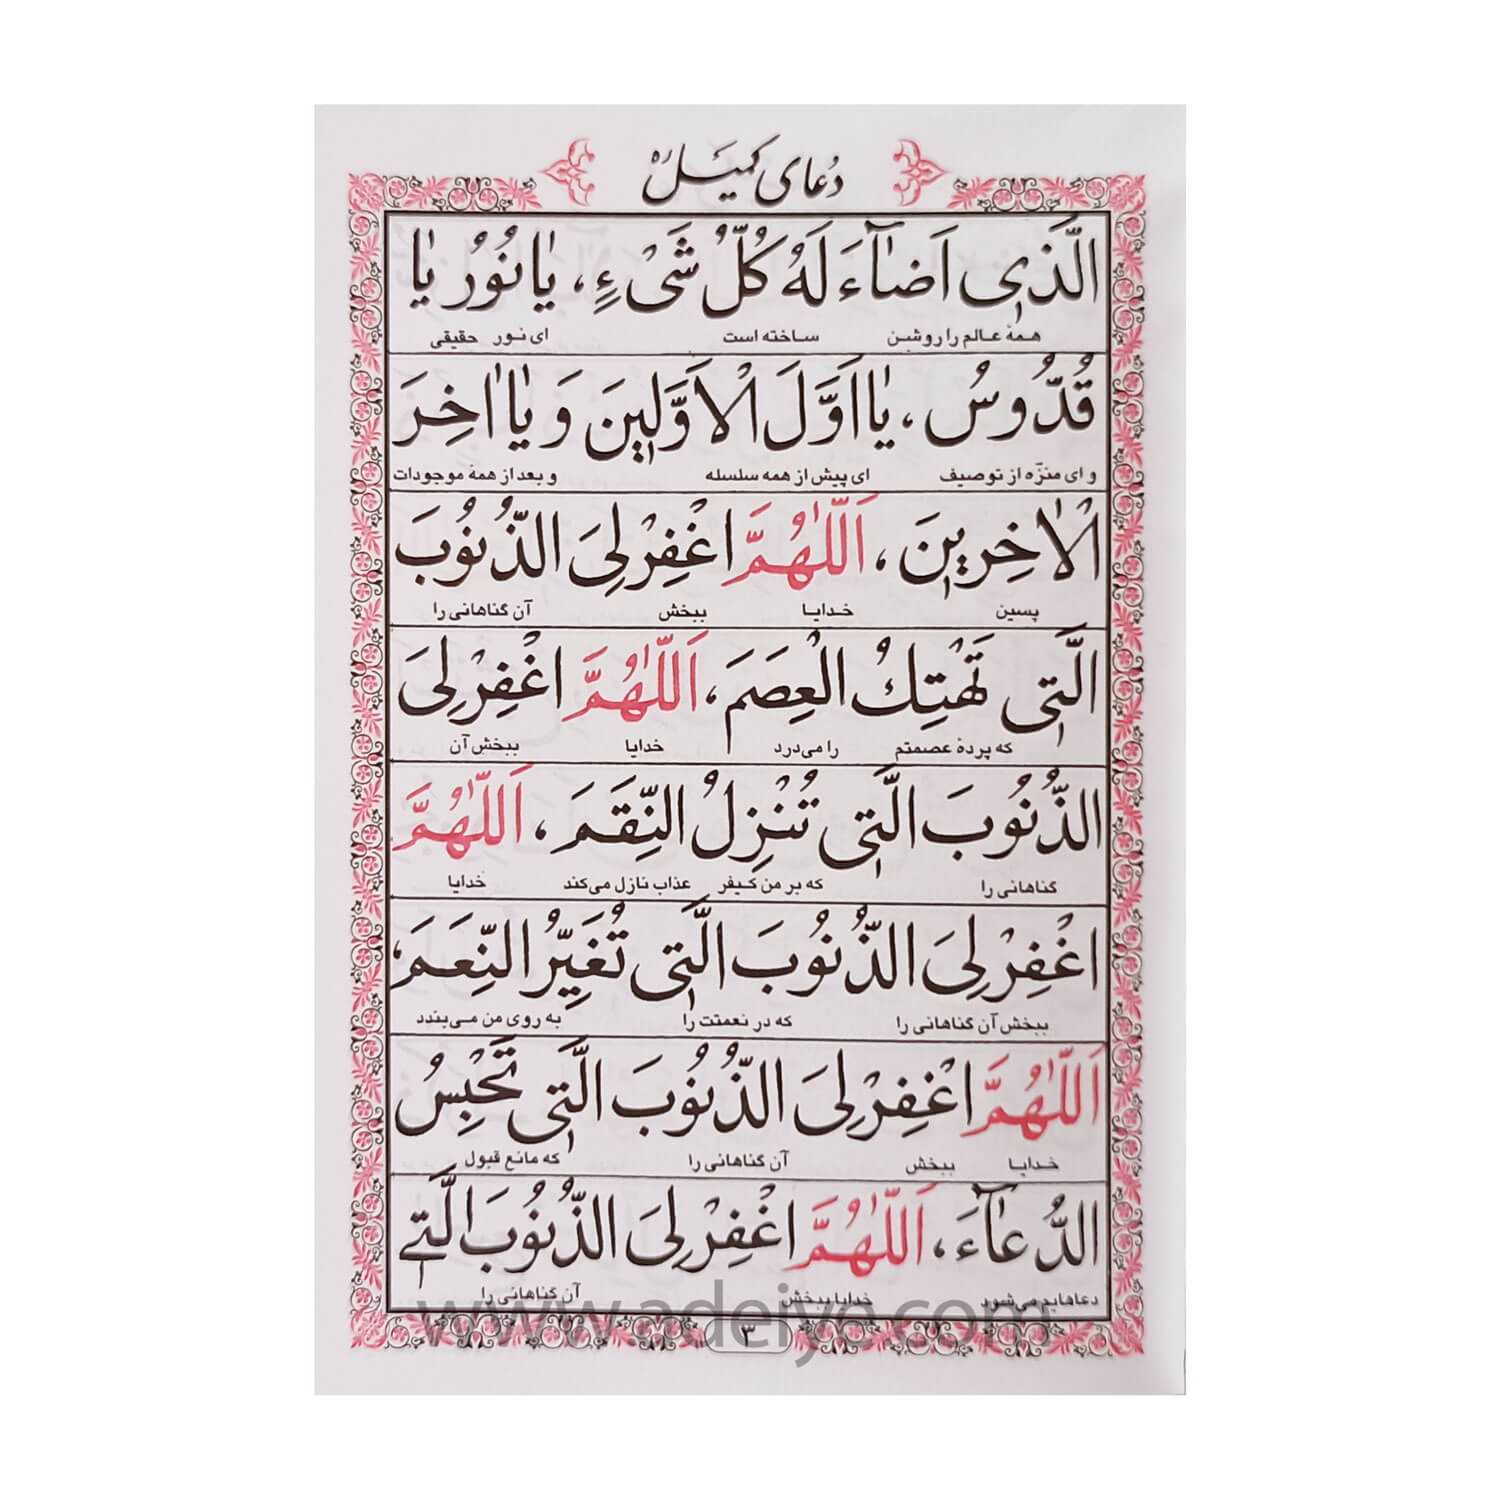 دعای کمیل ره
الَّذٖی اَضٰٓاءَ لَهُ کُلُّ شَیْءٍ، یٰا نُورُ یٰا
همهٔ عالم را روشن ساخته است ای نور حقیقی
قُدُّوسُ، یٰا اَوَّلَ الْاَوَّلٖینَ وَ یٰا اٰخِرَ
و ای منزّه از توصیف ای پیش از همه سلسله و بعد از همهٔ موجودات
الْاٰخِرٖینَ، اَللّٰهُمَّ اغْفِرْ لِیَ الذُّنُوبَ
پسین خدایا ببخش آن گناهانی را
الَّتٖی تَهْتِكُ الْعِصَمَ، اَللّٰهُمَّ اغْفِرْ لِیَ
که پردهٔ عصمتم را می‌درد خدایا ببخش آن
الذُّنُوبَ الَّتٖی تُنْزِلُ النِّقَمَ، اَللّٰهُمَّ
گناهانی را که بر من کیفر عذاب نازل می‌کند خدایا
اغْفِرْ لِیَ الذُّنُوبَ الَّتٖی تُغَیِّرُ النِّعَمَ،
ببخش آن گناهانی را که در نعمتت را به روی من می‌بندد
اَللّٰهُمَّ اغْفِرْ لِیَ الذُّنُوبَ الَّتٖی تَحْبِسُ
خدایا ببخش آن گناهانی را که مانع قبول
الدُّعٰٓاءَ، اَللّٰهُمَّ اغْفِرْ لِیَ الذُّنُوبَ الَّتٖی
دعاهایم می‌شود خدایا ببخش آن گناهانی را
www.adeiye.com
۳